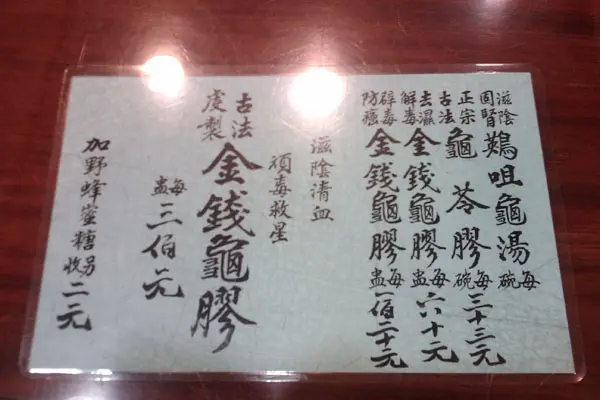 滋陰固腎咀龜湯每碗
正宗古法龜苓膠每碗三十三元
去濕解毒金錢龜膠每盅六十元
辟毒防癌金錢龜膠每盅一佰二十元
滋陰清血
頑毒救星
古法虔製金錢龜膠
每盅三佰元
加野蜂蜜糖另收二元